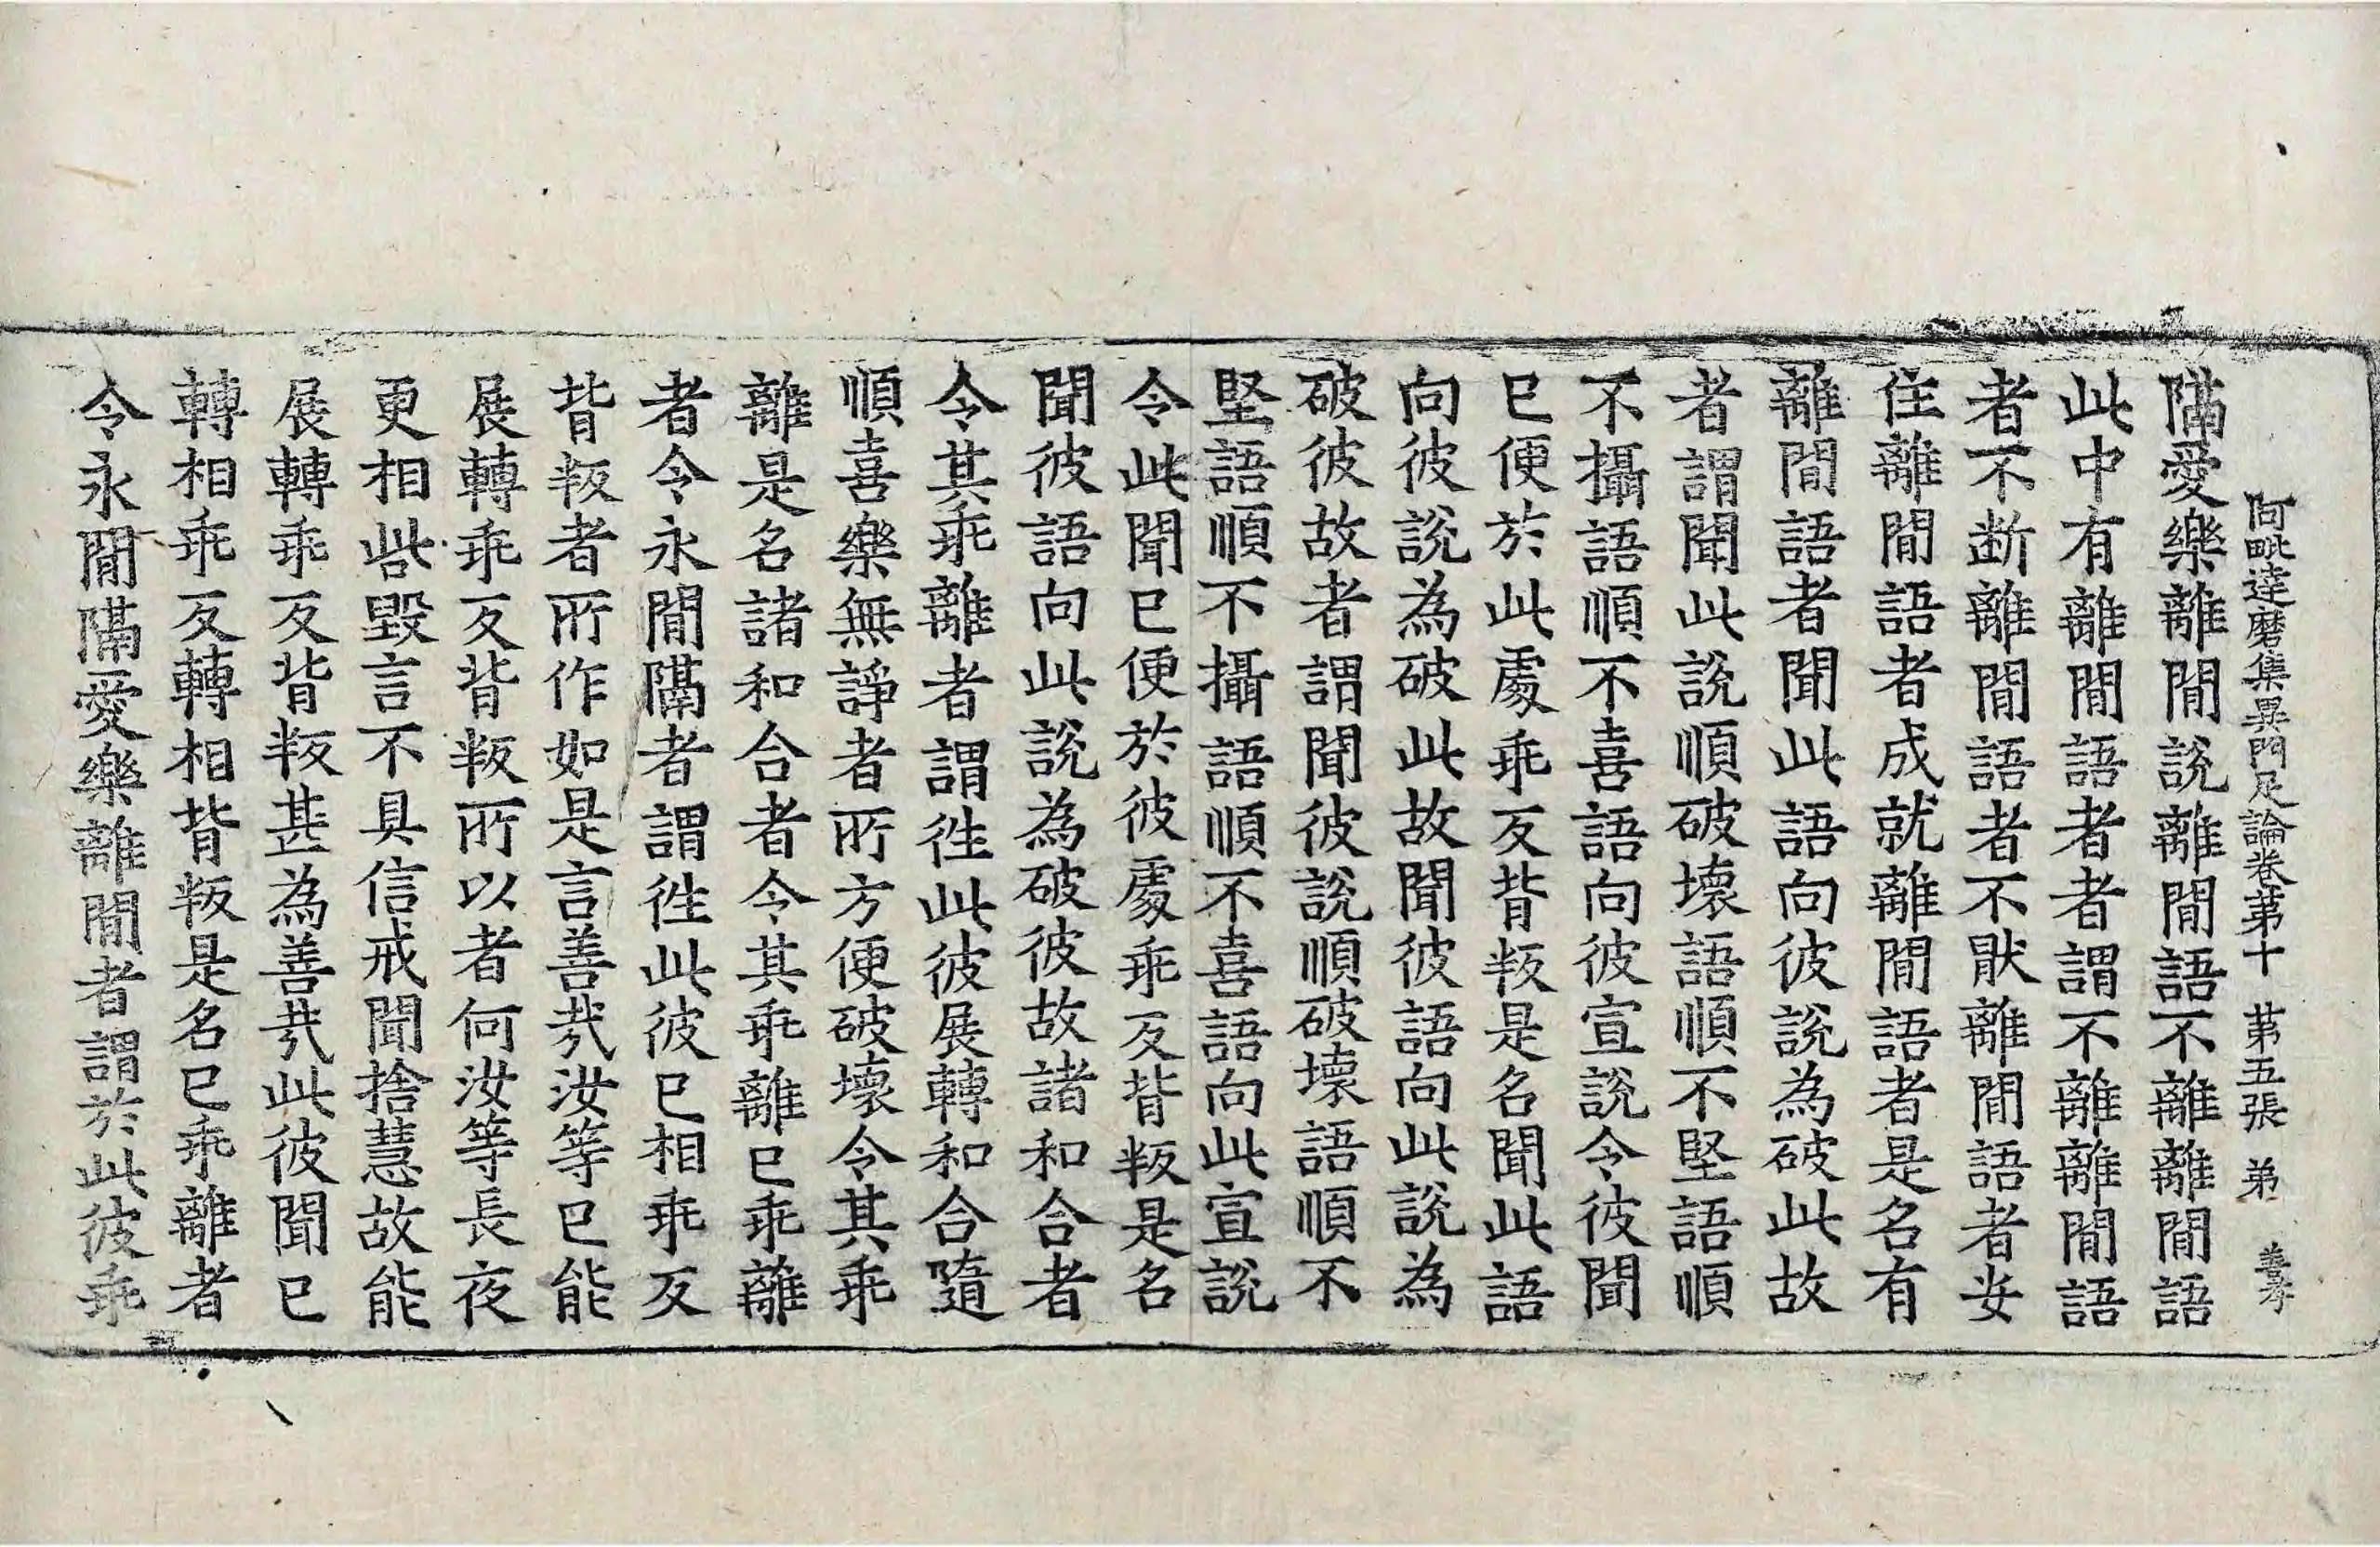 阿毗達磨集異門足論卷苐十 苐五張 弟
隔愛樂離閒說離閒語不離離閒語
此中有離閒語者者謂不離離閒語
者不断離閒語者不猒離閒語者安
住離閒語者成就離閒語者是名有
離閒語者聞此語向彼說為破此故
者謂聞此說順破壞語順不堅語順
不攝語順不喜語向彼宣說令彼聞
已便於此處乖反背叛是名聞此語
向彼說為破此故聞彼語向此說為
破彼故者謂聞彼說順破壞語順不
堅語順不攝語順不喜語向此宣說
令此聞已便於彼處乖反背叛是名
聞彼語向此說為破彼故諸和合者
令其乖離者謂徃此彼展轉和合隨
順喜樂無諍者所方便破壞令其乖
離是名諸和合者令其乖離已乖離
者令永閒隔者謂徃此彼已相乖反
背叛者所作如是言善哉汝等已能
展轉乖反背叛所以者何汝等長夜
更相呰毀言不具信戒聞捨慧故能
展轉乖反背叛甚為善哉此彼聞已
轉相乖反轉相背叛是名已乖離者
令永閒隔愛樂離閒者謂於此彼乖